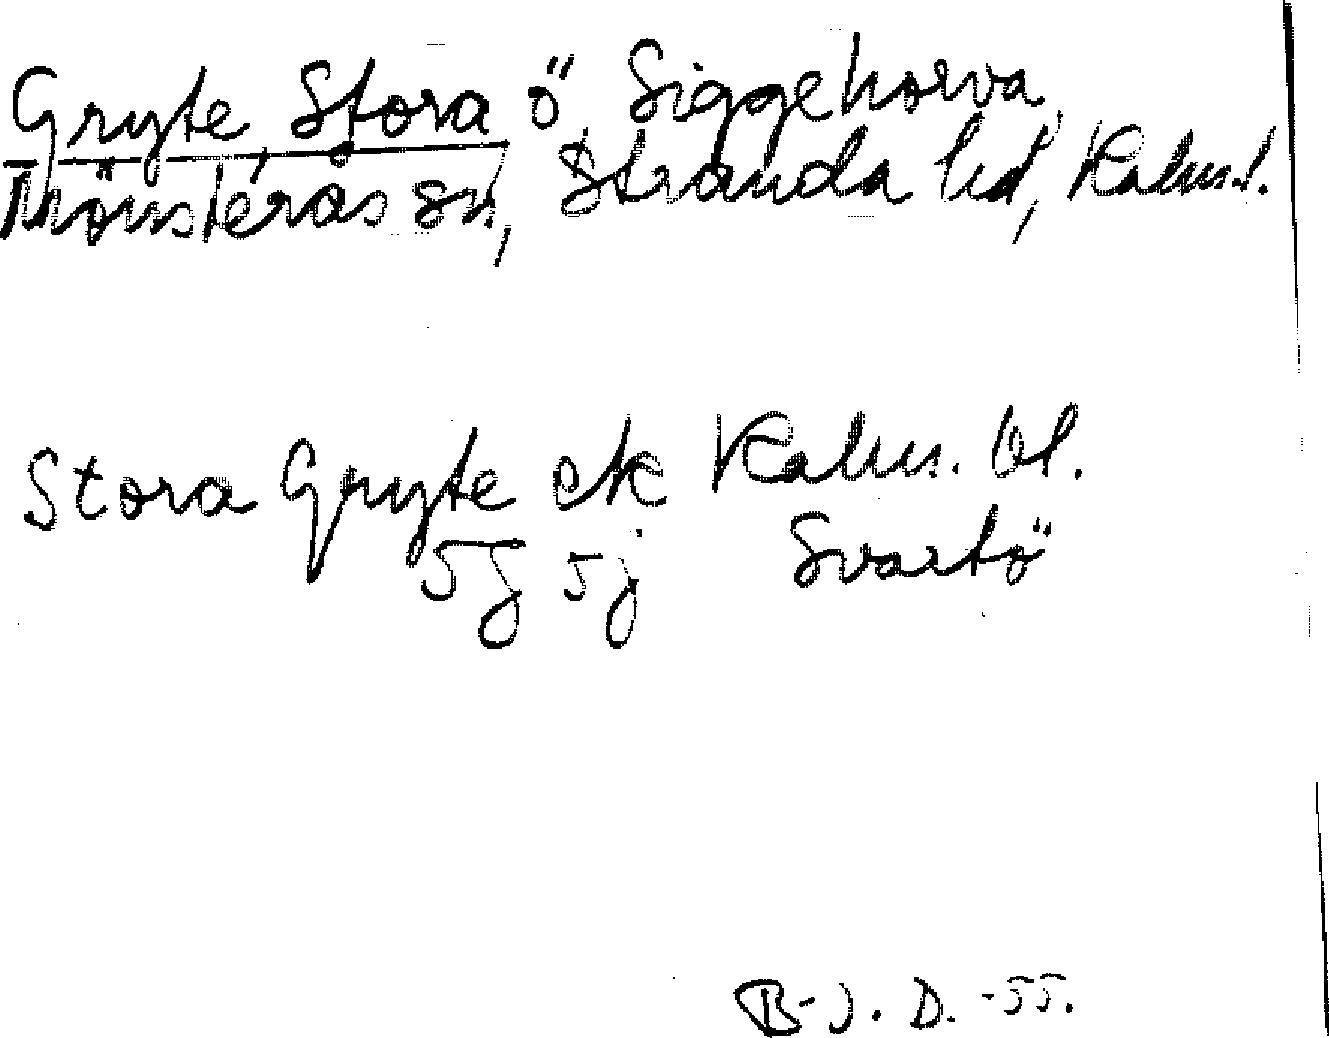 Gryte, Stora ö Siggehorva,
Mönsterås sn, Stranda hd, Kalm. l.
Stora Gryte ek Kalm. bl.
5g 5j Svartö
B-J. D. -55.